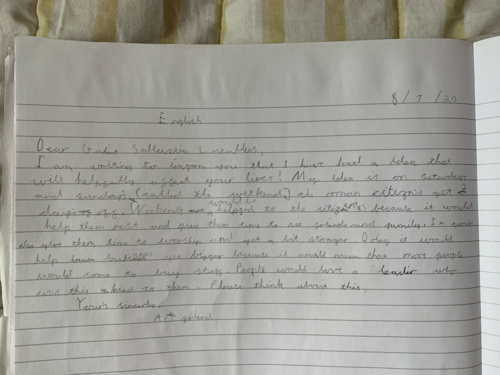 8/7/20
English
Dear Sallustia
I am writing to you that I have had a idea that
will affect your lives! My idea is on Saturday
and sundays (called the weekend) the roman citizens get 2
days off. Weekends would be helpful to the because it would
help them rest and give them time to see and family. It
also give them time to worship and get a bit stronger. it would
help get bigger because it would mean that more people
would come to buy stuff. People would love a leader who
was this kind to them. Please think about this.
Yours
A